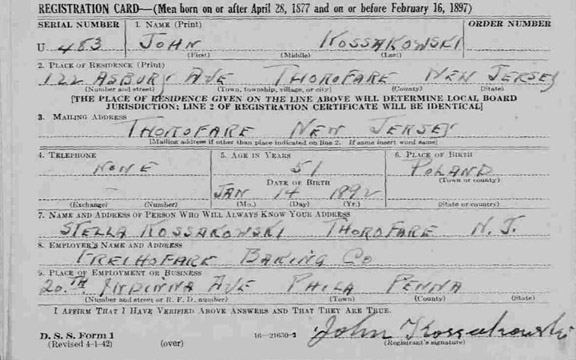 REGISTRATION CARD—(Men born on or after April 28, 1877 and on or before February 16, 1897)
SERIAL NUMBER 1. NAME (Print) ORDER NUMBER
U 483 JOHN KOSSAKOWSKI
(First) (Middle) (Last)
2. PLACE OF RESIDENCE (Print)
122 ASBURY AVE THOROFARE NEW JERSEY
(Number and street) (Town, township, village, or city) (County) (State)
[THE PLACE OF RESIDENCE GIVEN ON THE LINE ABOVE WILL DETERMINE LOCAL BOARD
JURISDICTION; LINE 2 OF REGISTRATION CERTIFICATE WILL BE IDENTICAL]
3. MAILING ADDRESS
THOROFARE NEW JERSEY
[Mailing address if other than place indicated on line 2. If same insert word same]
4. TELEPHONE 5. AGE IN YEARS 6. PLACE OF BIRTH
NONE 51 POLAND
DATE OF BIRTH (Town or county)
JAN 14 1892
(Exchange) (Number) (Mo.) (Day) (Yr.) (State or country)
7. NAME AND ADDRESS OF PERSON WHO WILL ALWAYS KNOW YOUR ADDRESS
STELLA KOSSAKOWSKI THOROFARE N.J.
8. EMPLOYER'S NAME AND ADDRESS
FREIHOFARE BAKING CO
9. PLACE OF EMPLOYMENT OR BUSINESS
20.TH INDINNA AVE PHILA PENNA
(Number and street or R. F. D. number) (Town) (County) (State)
I AFFIRM THAT I HAVE VERIFIED ABOVE ANSWERS AND THAT THEY ARE TRUE.
D. S. S. Form 1
(Revised 4-1-42) (over) 16—21630-2 John Kossakowski
(Registrant's signature)